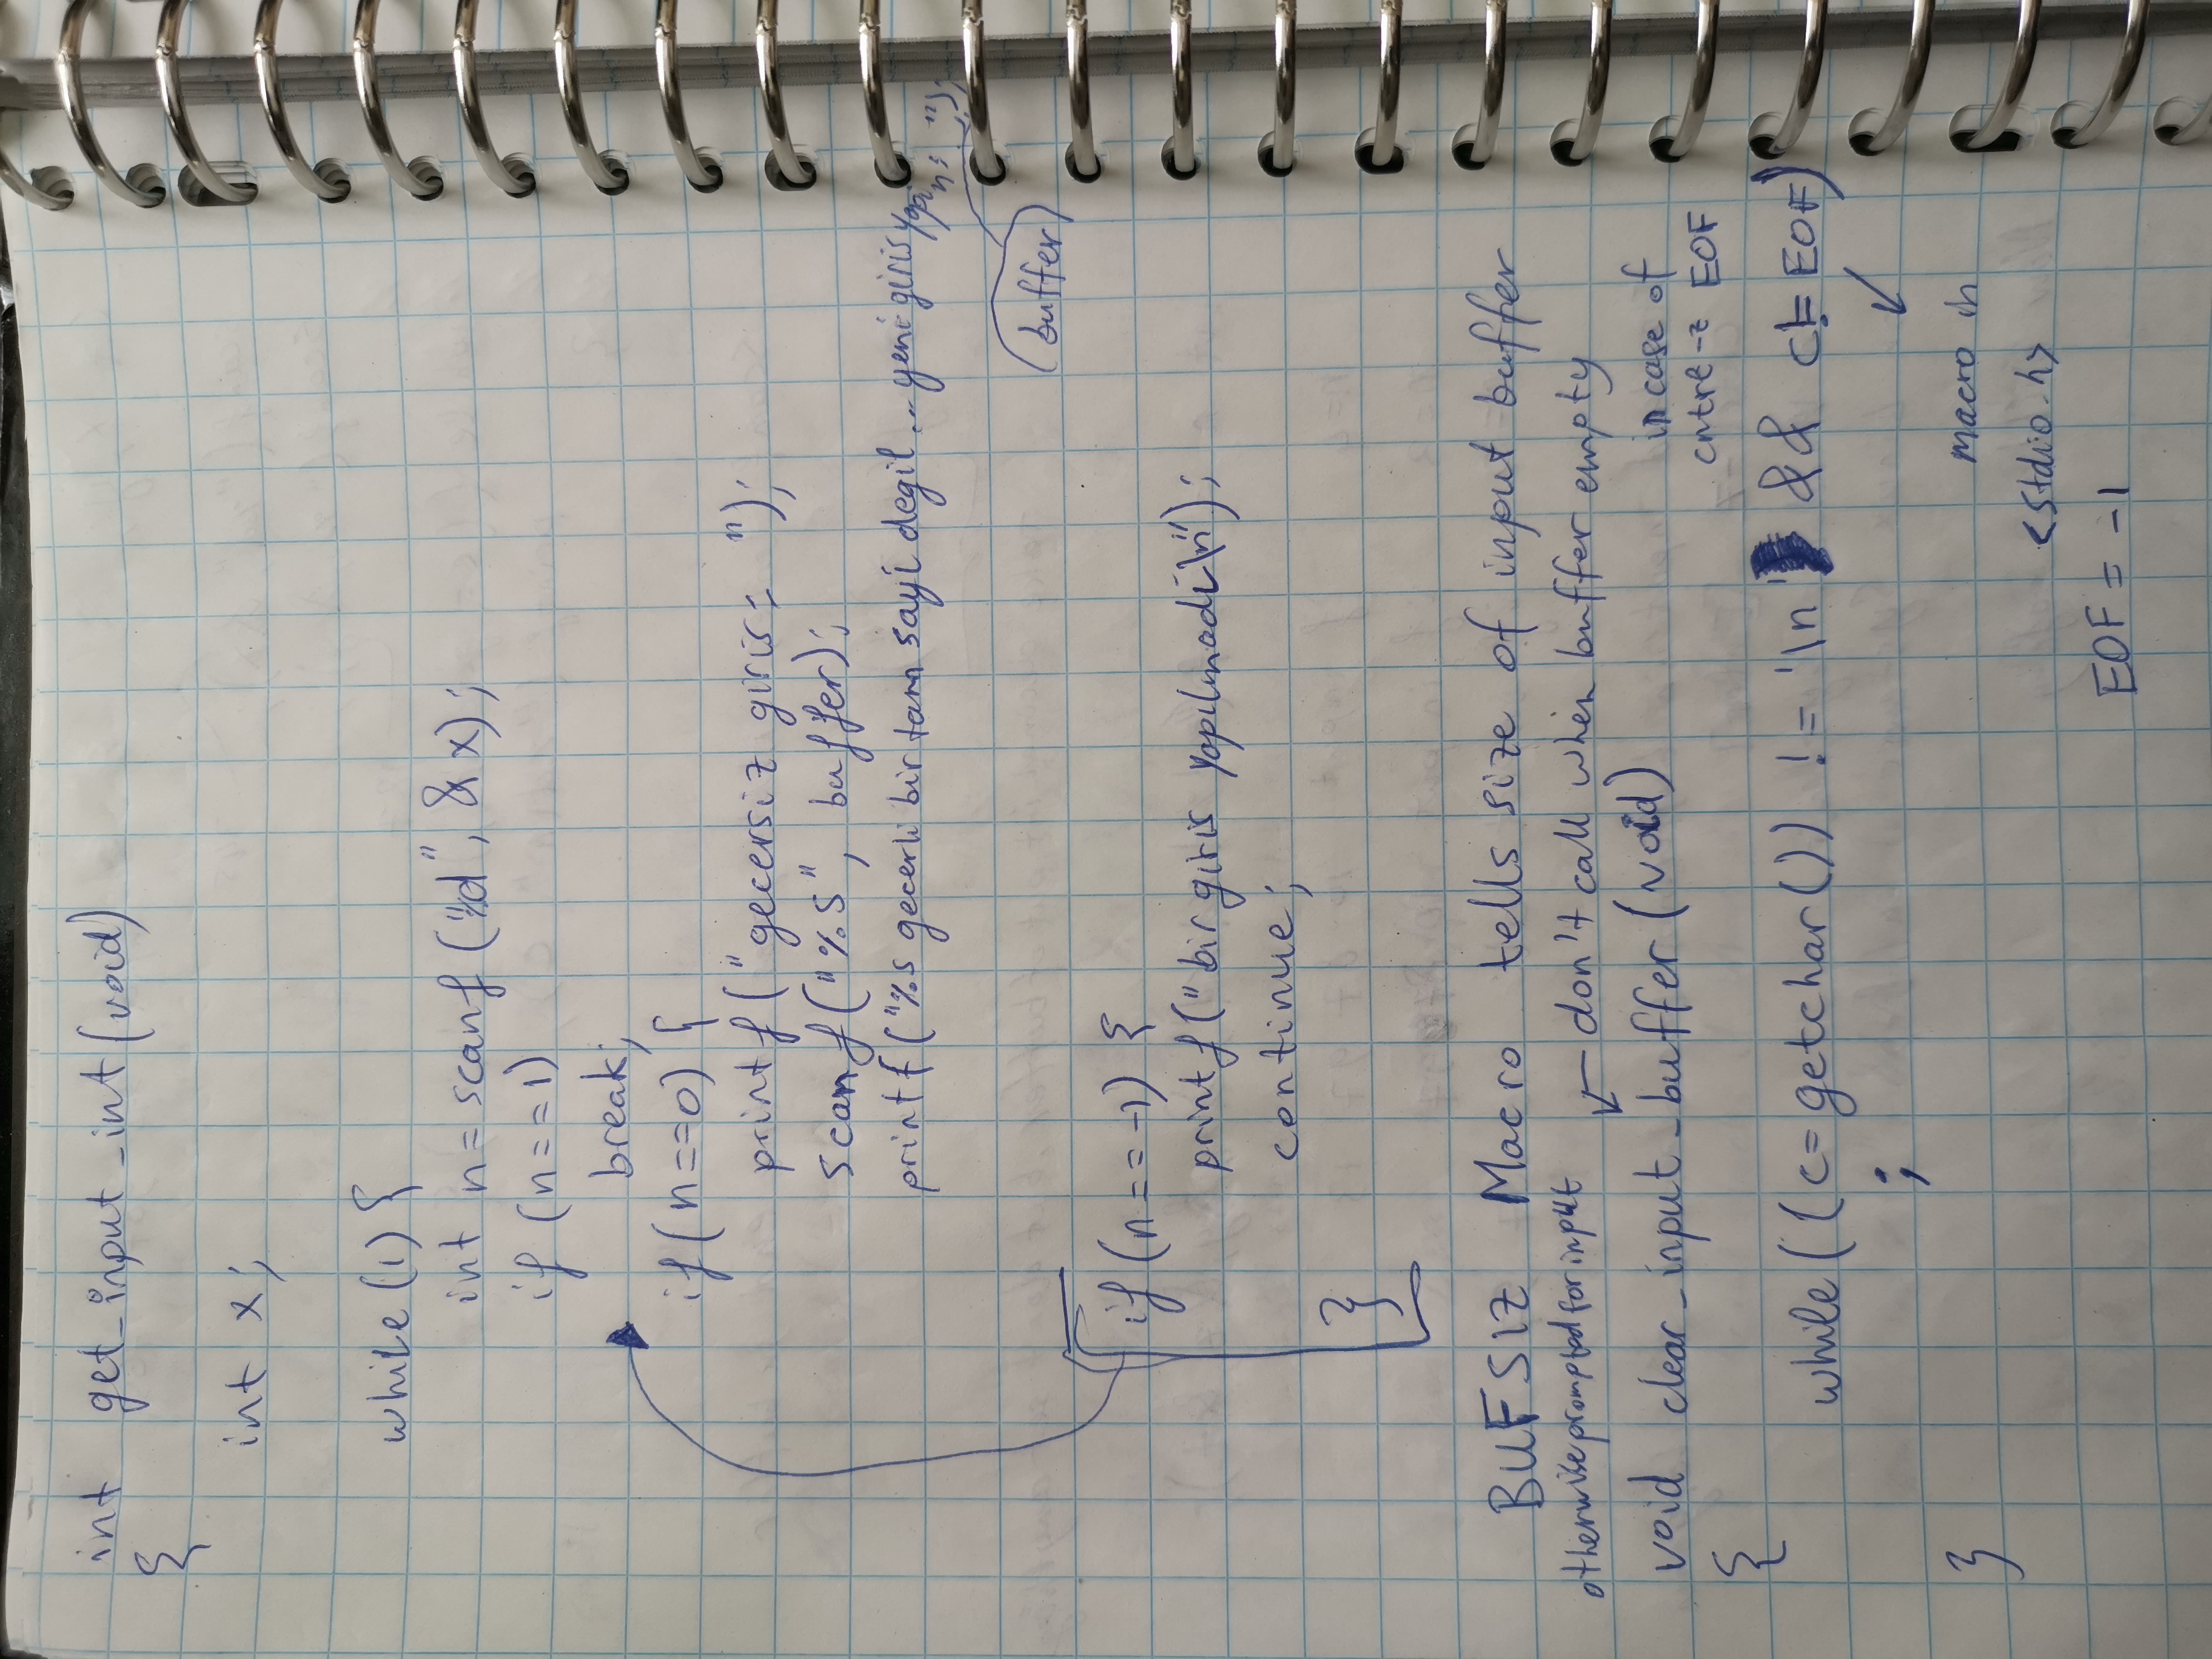 int get_input_int(void)
{
int x;
while (1) {
int n = scanf ("%d", &x);
if (n==1)
break;
if (n==0) {
printf ("gecersiz giris: ");
scanf ("%s", buffer);
printf ("%s gecerli bir tam sayi degil... yeni giris yapin: ");
buffer)
if (n == -1) {
printf ("bir giris yapılmadi\n");
continue;
}
BUFSIZ Macro tells size of input buffer
otherwise prompted for input
← don't call when buffer empty
void clear_input_buffer (void)
in case of
cntrl-z EOF
{
while ((c=getchar()) != '\n' && c != EOF)
;
}
macro in
<stdio.h>
EOF = -1